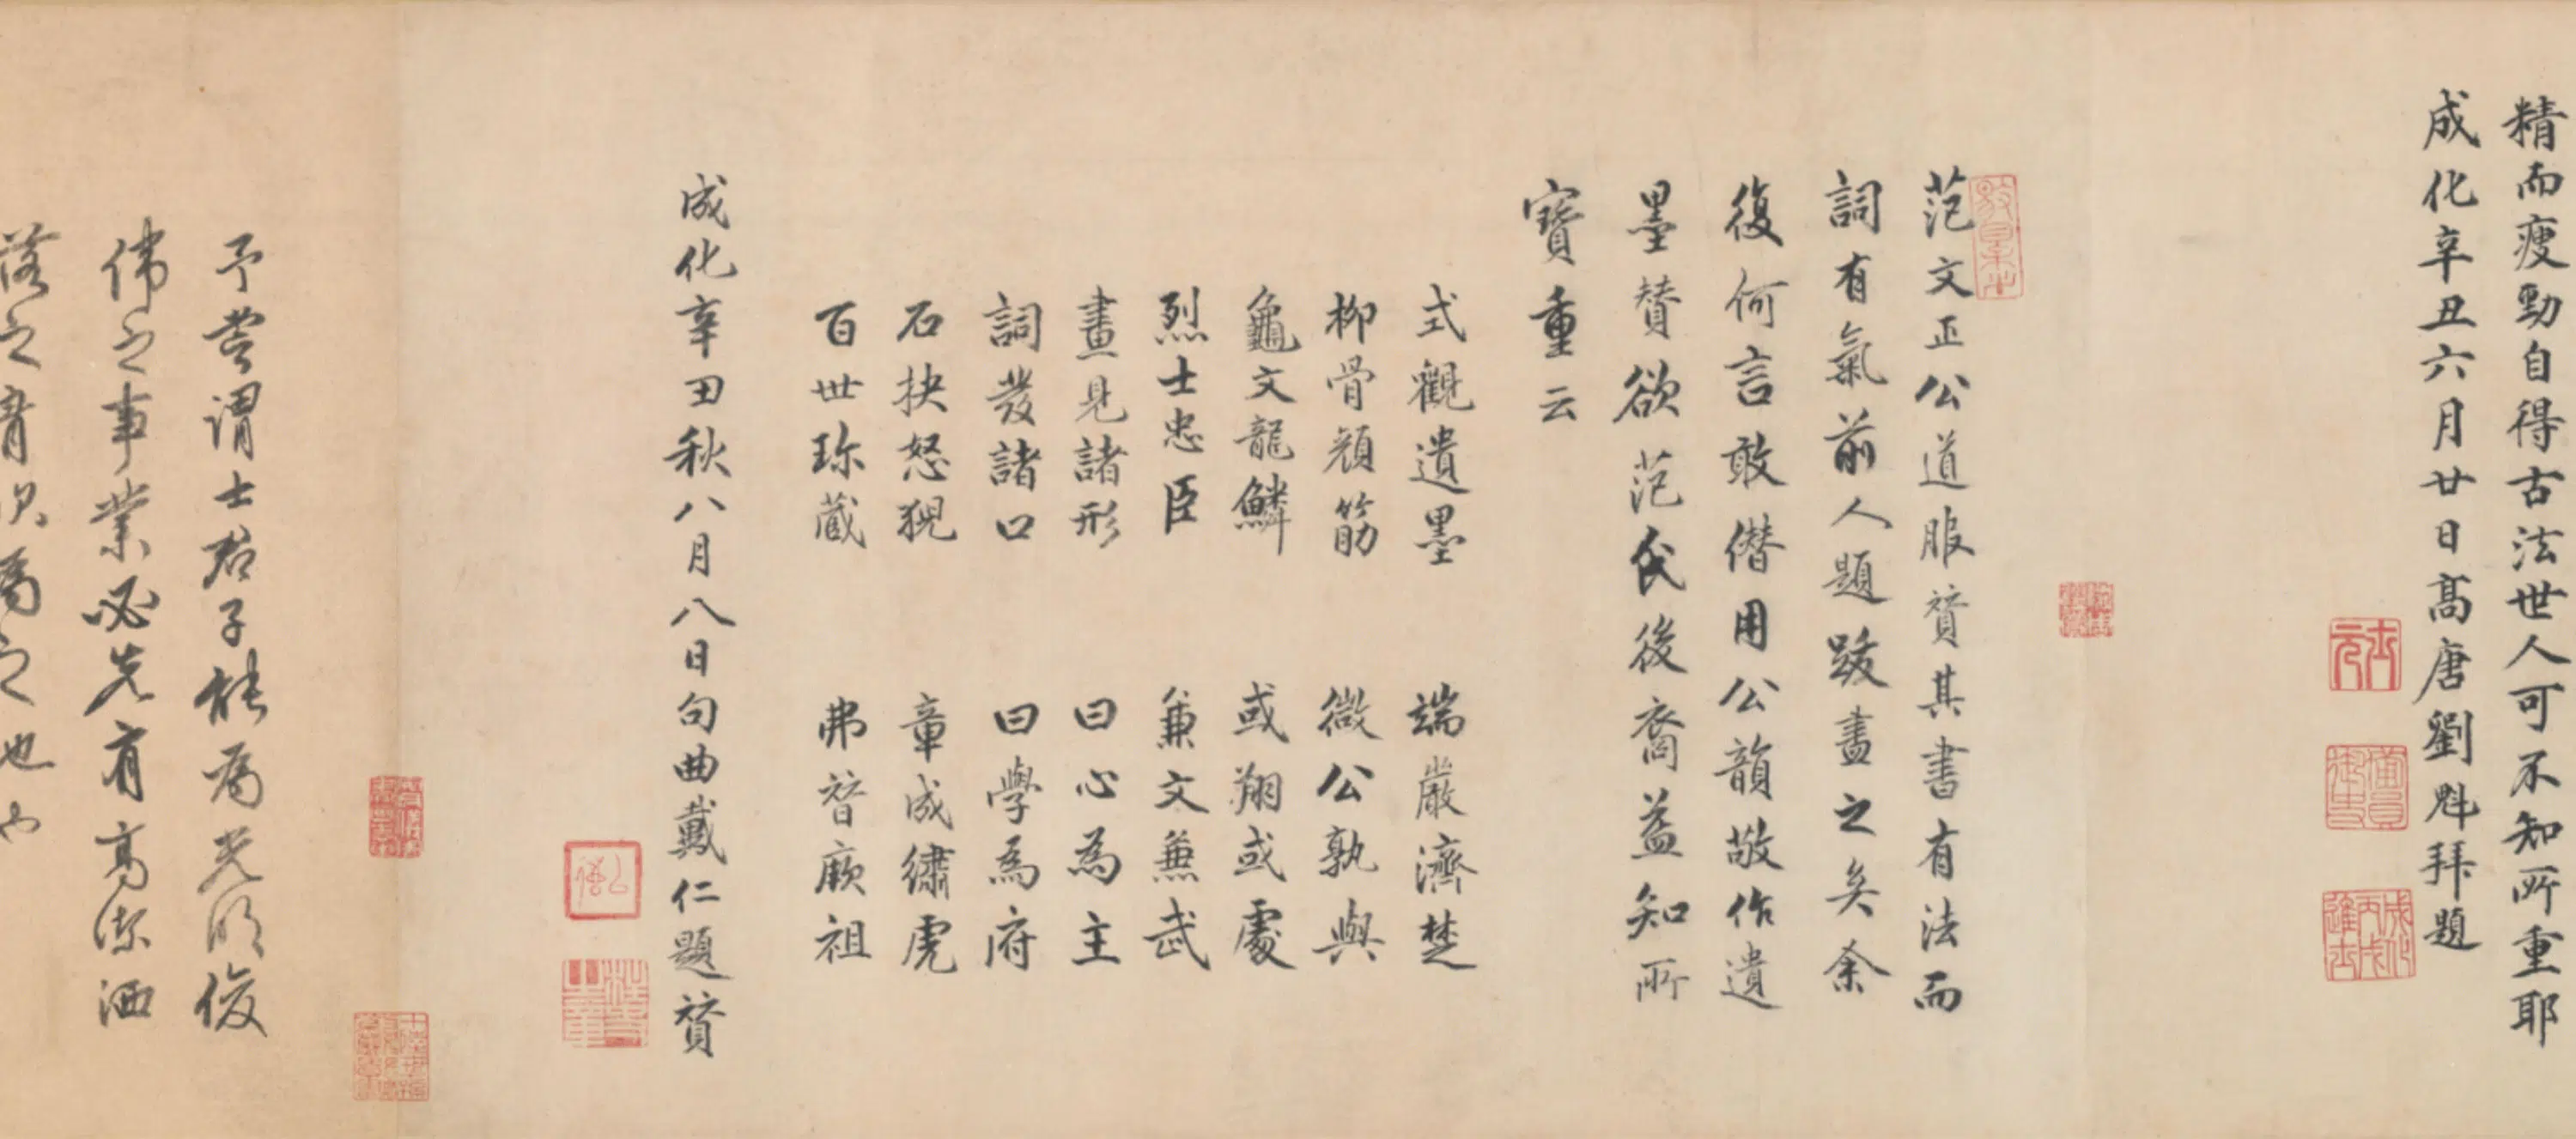 精而瘦勁自得古法世人可不知所重耶
成化辛丑六月廿日高唐劉魁拜題
范文正公道服賛其書有法而
詞有氣前人題跋盡之矣余
復何言敢僭用公韻敬作遺
墨賛欲范氏後裔益知所
寶重云
式觀遺墨 端嚴濟楚
柳骨顔筋 微公孰與
龜文龍鱗 或翔或處
烈士忠臣 兼文兼武
畫見諸形 曰心為主
詞發諸口 曰學為府
石抉怒猊 章成繡虎
百世珎藏 弗替厥祖
成化辛丑秋八月八日句曲戴仁題賛
予嘗謂士君子能為光明俊
偉之事業必先有高潔洒
落之胷次為之也